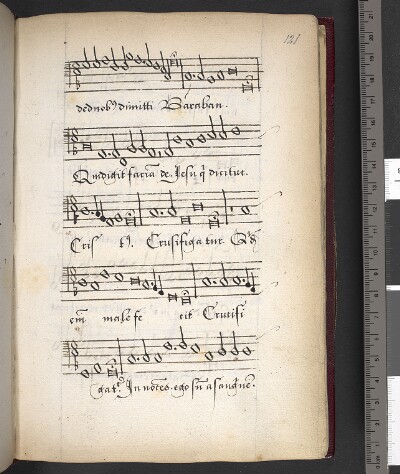 121
dednob9 dimitti Baraban.
Quidigit faciã de Jesu q̃ dicitur.
Cris t9. Crusifigatur. Q̃d
em̃ male fe cit Crucifi
gat᷑. Innoẽs ego sũ a sanguĩe.